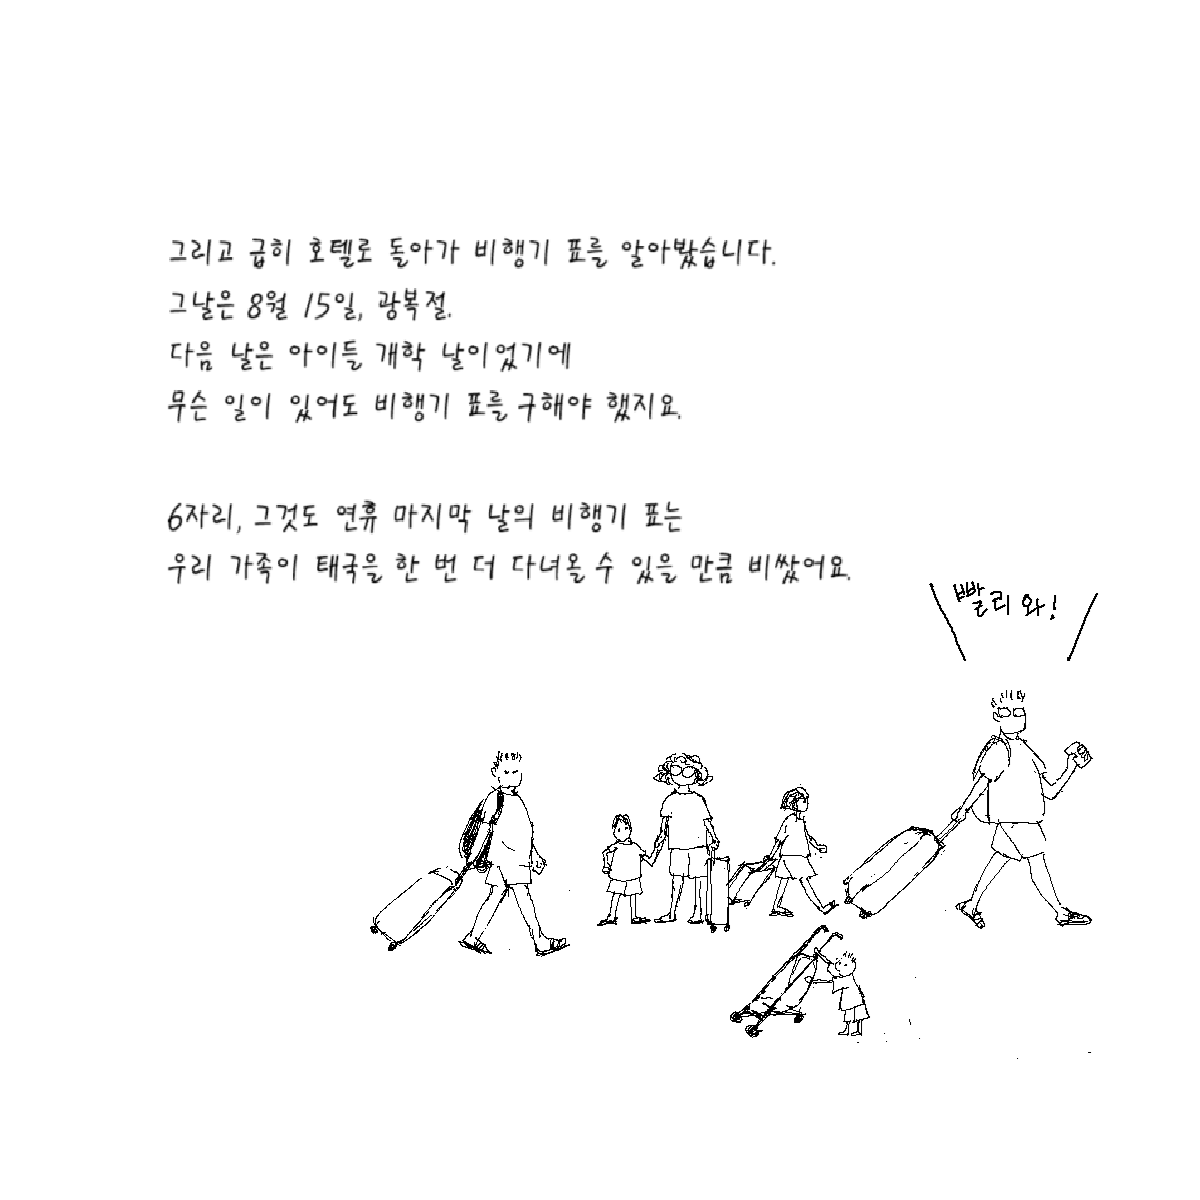 그리고 급히 호텔로 돌아가 비행기 표를 알아봤습니다.
그날은 8월 15일, 광복절.
다음 날은 아이들 개학 날이었기에
무슨 일이 있어도 비행기 표를 구해야 했지요.
6자리, 그것도 연휴 마지막 날의 비행기 표는
우리 가족이 태국을 한 번 더 다녀올 수 있을 만큼 비쌌어요.
빨리 와!